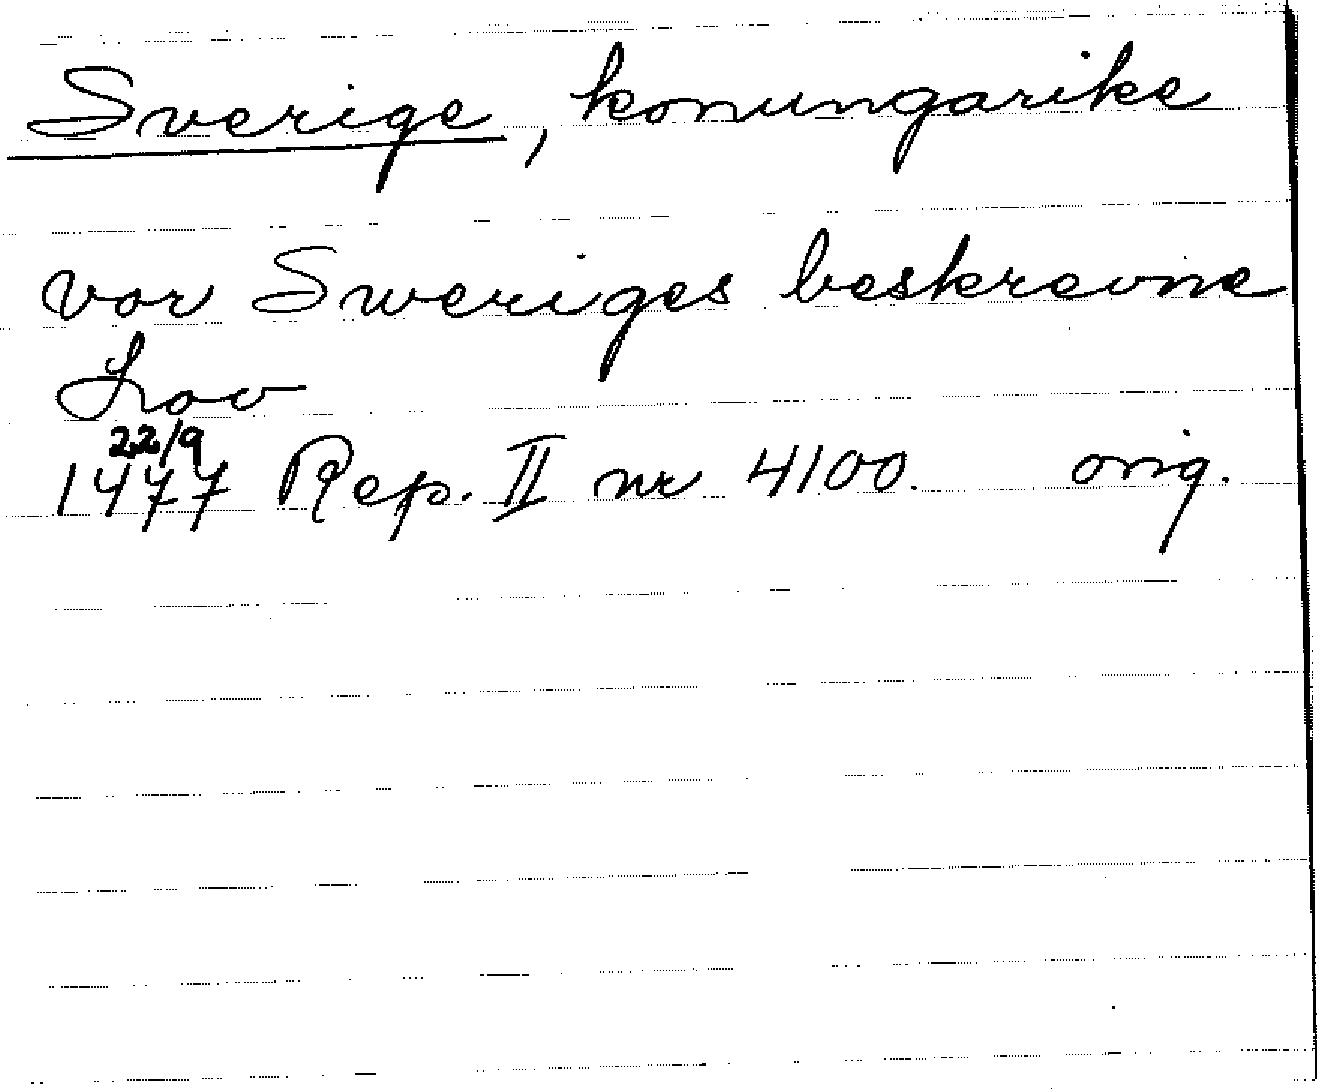 Sverige, konungarike
vor Sweriges beskrevne
Lov
22/9
1477 Rep. II nr 4100. orig.